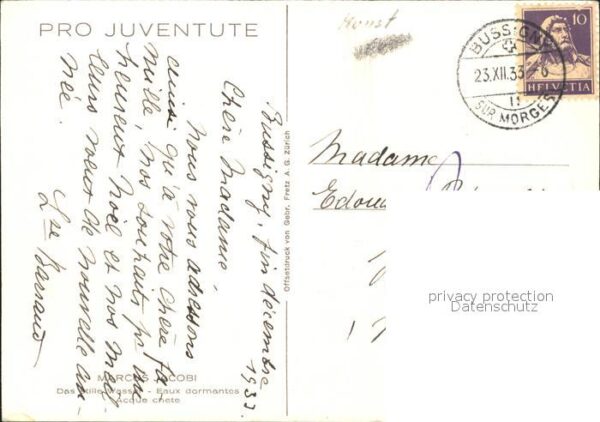 PRO JUVENTUTE
Konst
BUSSIGNY
23.XII.33-6
II
SUR MORGES
10
HELVETIA
Bussigny, fin décembre
1933.
Chère Madame,
Nous vous adressons
ainsi qu'à votre chère fa
mille, nos souhaits pr un
heureux Noël et nos meil
leurs voeux de nouvelle an-
née.
Lse Barraud
Offsetdruck von Gebr. Fretz A. G. Zürich
Madame
Edoua
privacy protection
Datenschutz
MARCUS JACOBI
Das stille Wasser - Eaux dormantes
Acque chete